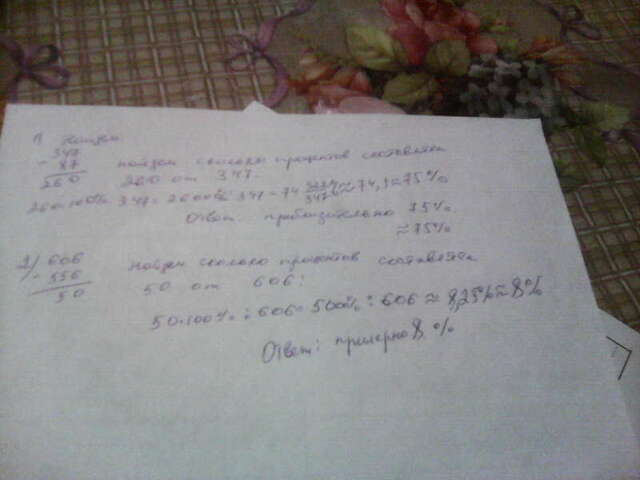 1) Найдем
347
- 87
260
найдем сколько процентов составляет
260 от 347.
260·100% : 347 = 26000% : 347 = 74 ≈ 74,9 ≈ 75%
Ответ: приблизительно 75%.
≈ 75%
2) 606
- 556
50
найдем сколько процентов составляет
50 от 606:
50·100% : 606 = 500% : 606 ≈ 8,25% ≈ 8%
Ответ: примерно 8 %